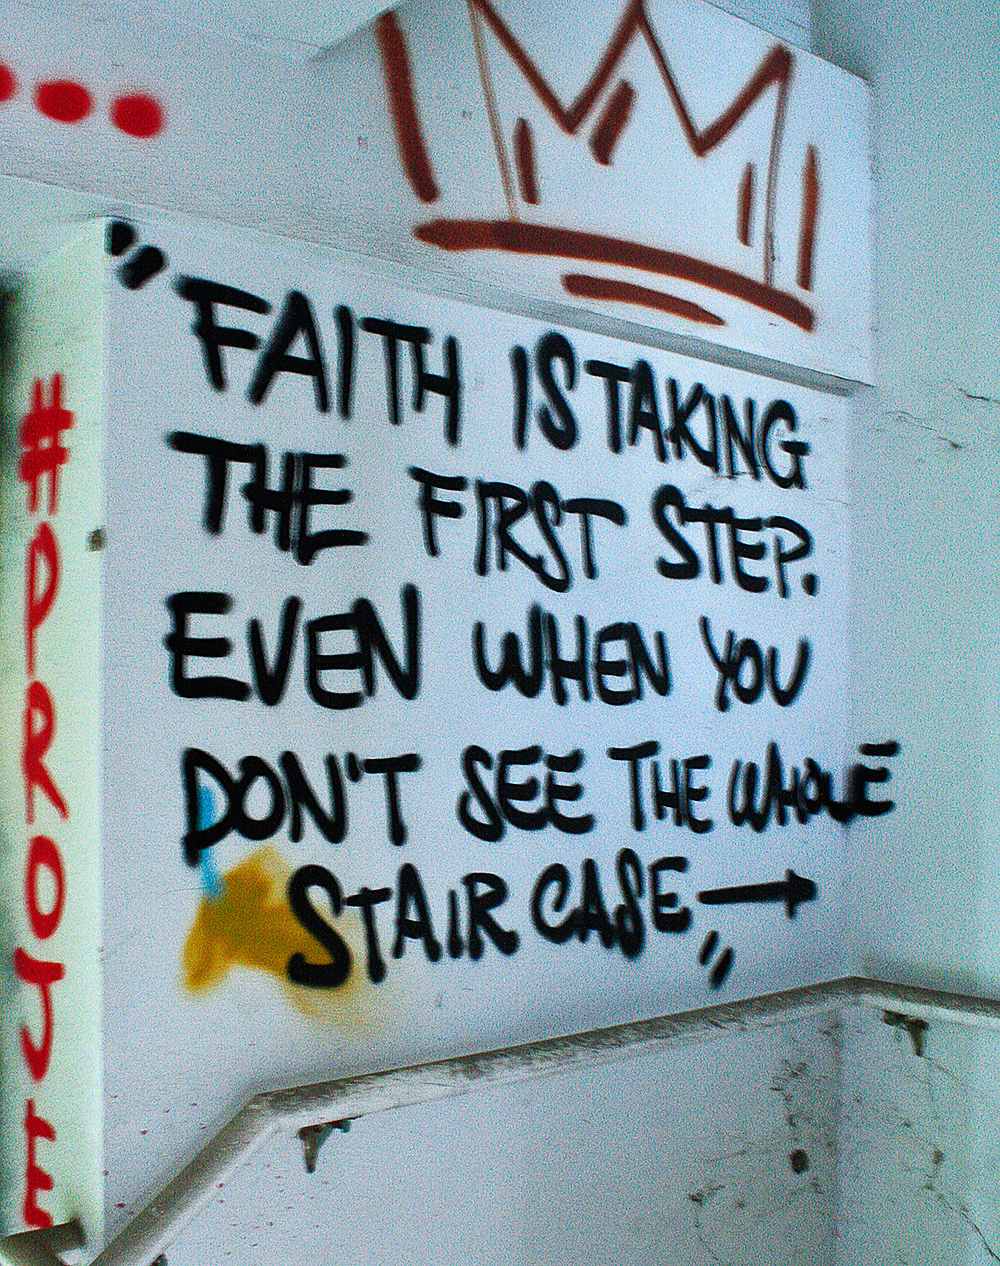 "FAITH IS TAKING
THE FIRST STEP.
EVEN WHEN YOU
DON'T SEE THE WHOLE
STAIRCASE → "
#PROJE